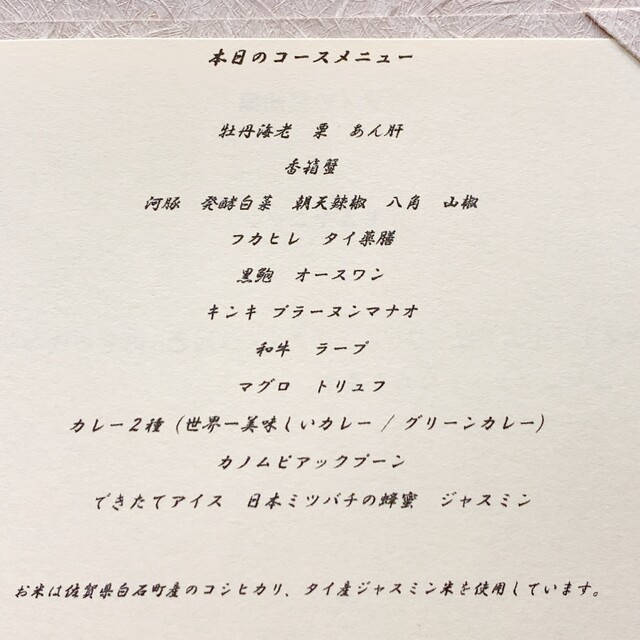 本日のコースメニュー
牡丹海老　栗　あん肝
香箱蟹
河豚　発酵白菜　朝天辣椒　八角　山椒
フカヒレ　タイ薬膳
黒鮑　オースワン
キンキ プラーヌンマナオ
和牛　ラープ
マグロ　トリュフ
カレー２種（世界一美味しいカレー / グリーンカレー）
カノムピアックプーン
できたてアイス　日本ミツバチの蜂蜜　ジャスミン
お米は佐賀県白石町産のコシヒカリ、タイ産ジャスミン米を使用しています。